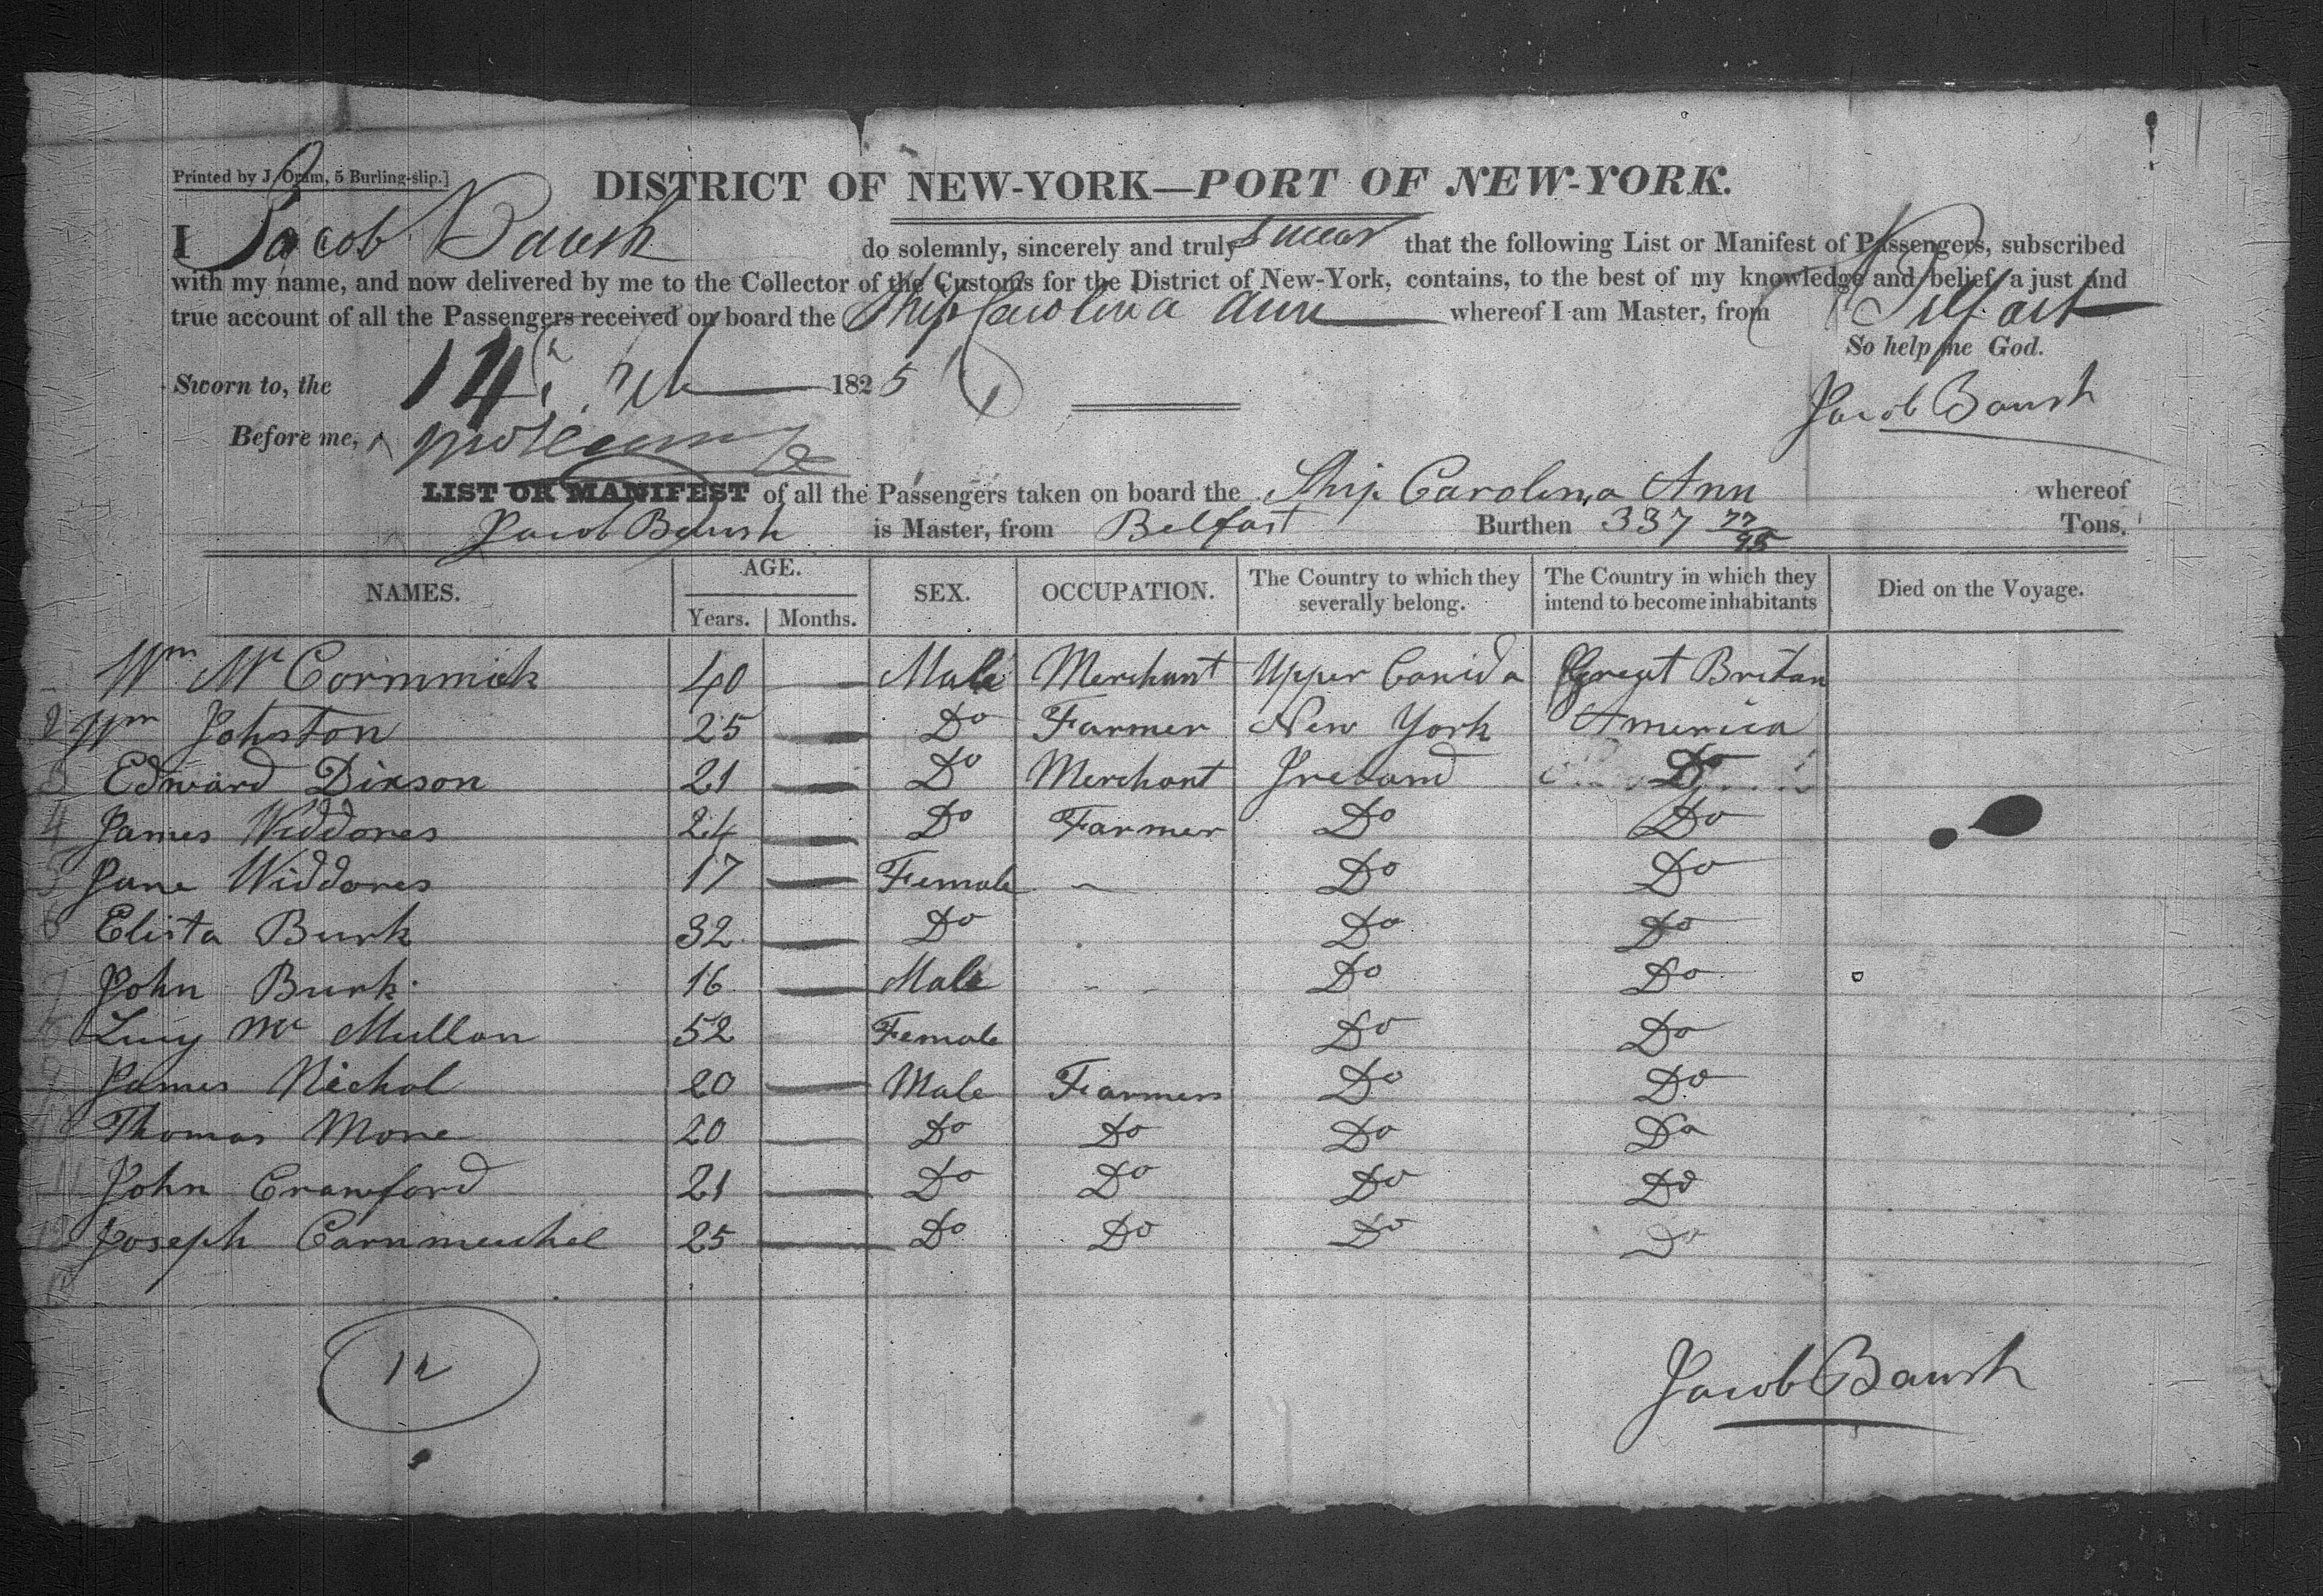 Printed by J. Oram, 5 Burling-slip.]
DISTRICT OF NEW-YORK—PORT OF NEW-YORK.
I Jacob Baush do solemnly, sincerely and truly swear that the following List or Manifest of Passengers, subscribed
with my name, and now delivered by me to the Collector of the Customs for the District of New-York, contains, to the best of my knowledge and belief, a just and
true account of all the Passengers received on board the Ship Carolina Ann whereof I am Master, from Belfast
So help me God.
Sworn to, the 14 1825
Jacob Baush
Before me,
LIST OR MANIFEST of all the Passengers taken on board the Ship Carolina Ann whereof
Jacob Baush is Master, from Belfast Burthen 337 77/95 Tons.
NAMES. AGE. SEX. OCCUPATION. The Country to which they severally belong. The Country in which they intend to become inhabitants Died on the Voyage.
Years. Months.
Wm Mc Cormmick 40 — Male Merchant Upper Canida Great Britan
2 Wm Johnston 25 — Do Farmer New York America
3 Edward Dixson 21 — Do Merchant Ireland Do
4 James Widdores 24 — Do Farmer Do Do
5 Jane Widdores 17 — Female ~ Do Do
6 Elista Burk 32 — Do Do Do
7 John Burk 16 — Male - - Do Do
8 Lucy Mc Mullan 52 Female Do Do
9 James Nichol 20 — Male Farmers Do Do
10 Thomas More 20 — Do Do Do Do
11 John Crawford 21 — Do Do Do Do
12 Joseph Carnmeichel 25 — Do Do Do Do
12
Jacob Baush